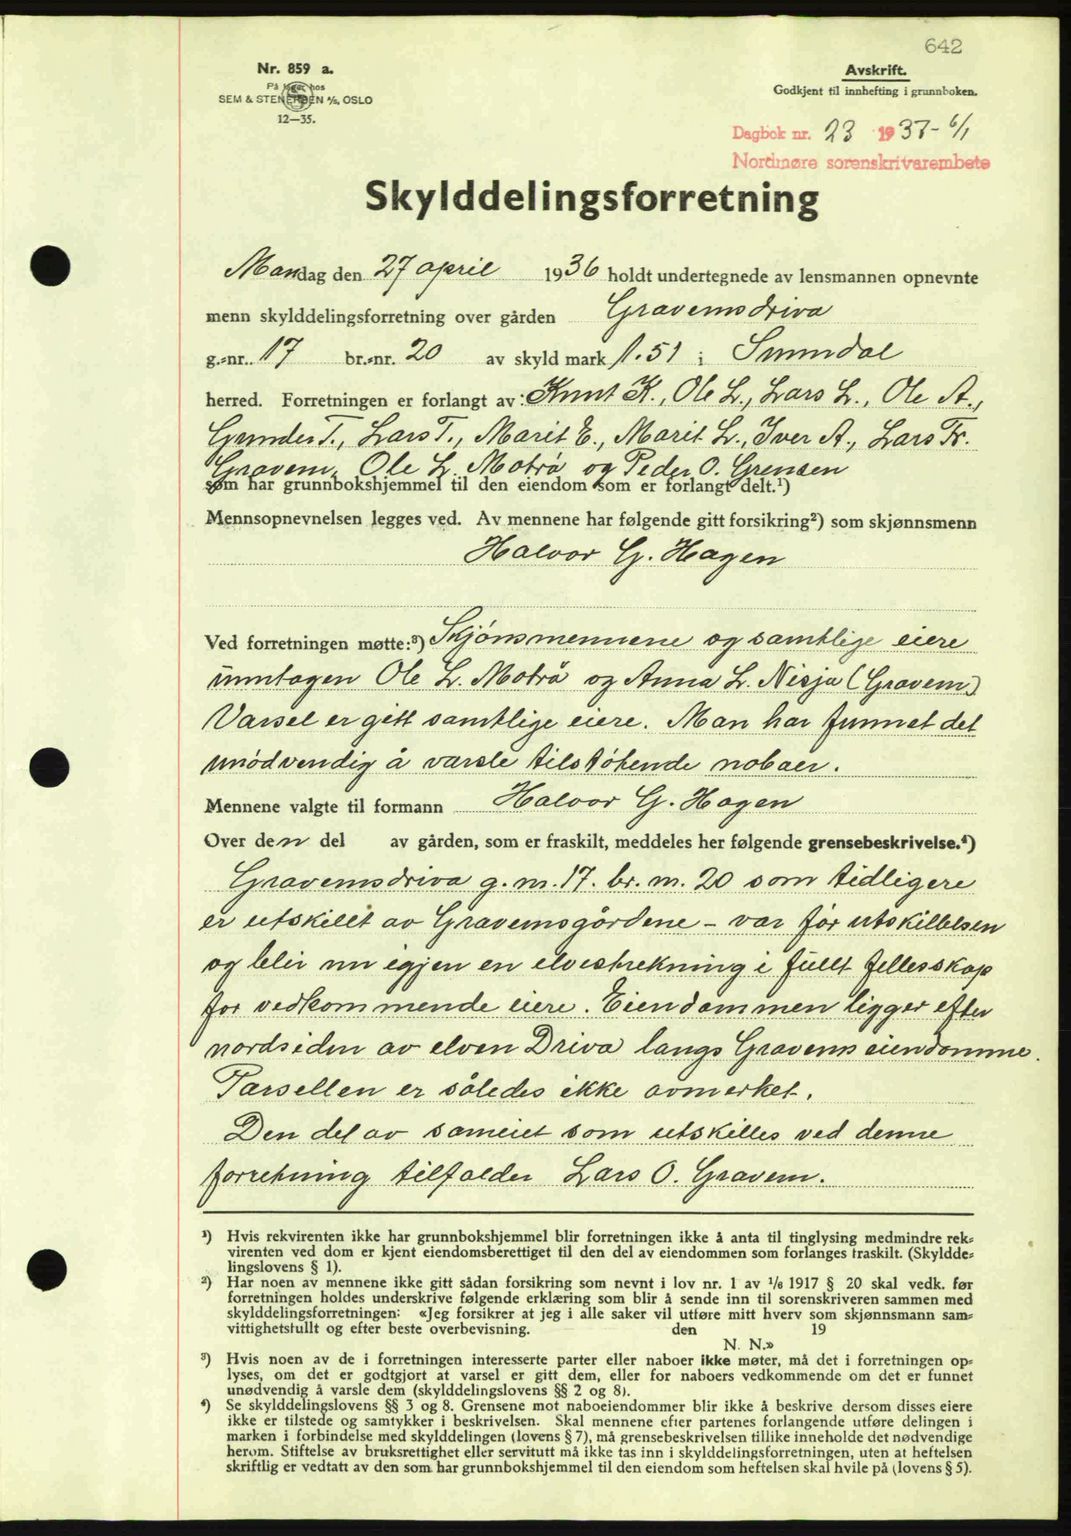 642
Nr. 859 a.
På lager hos
SEM & STENERSEN A/S, OSLO
12—35.
Avskrift.
Godkjent til innhefting i grunnboken.
Dagbok nr. 23 1937- 6/1
Nordmøre sorenskrivarembete
Skylddelingsforretning
Mandag den 27 april 1936 holdt undertegnede av lensmannen opnevnte
menn skylddelingsforretning over gården Gravemsdriva
g.-nr. 17 br.-nr. 20 av skyld mark 1.51 i Sunndal
herred. Forretningen er forlangt av: Knut K., Ole L., Lars L., Ole A.,
Gunder T., Lars T., Marit E., Marit L., Iver A., Lars Fr.
Gravem, Ole L. Motrø og Peder O. Grensen
som har grunnbokshjemmel til den eiendom som er forlangt delt.¹)
Mennsopnevnelsen legges ved. Av mennene har følgende gitt forsikring²) som skjønnsmenn
Halvor G. Hagen
Ved forretningen møtte:³) Skjønsmennene og samtlige eiere
unntagen Ole L. Motrø og Anna L. Nisja (Gravem)
Varsel er gitt samtlige eiere. Man har funnet det
unødvendig å varsle tilstøtende naboer.
Mennene valgte til formann Halvor G. Hagen
Over den del av gården, som er fraskilt, meddeles her følgende grensebeskrivelse.⁴)
Gravemsdriva g.nr. 17. br.nr. 20 som tidligere
er utskillt av Gravemsgårdene - var før utskillelsen
og bleir nu igjen en elvestrekning i fullt fellesskap
for vedkommende eiere. Eiendommen ligger efter
nordsiden av elven Driva langs Gravems eiendomme.
Parsellen er således ikke avmerket.
Den del av sameiet som utskilles ved denne
forretning tilfalder Lars O. Gravem.
¹) Hvis rekvirenten ikke har grunnbokshjemmel blir forretningen ikke å anta til tinglysing medmindre rek-
virenten ved dom er kjent eiendomsberettiget til den del av eiendommen som forlanges fraskilt. (Skyldde-
lingslovens § 1).
²) Har noen av mennene ikke gitt sådan forsikring som nevnt i lov nr. 1 av 1/6 1917 § 20 skal vedk. før
forretningen holdes underskrive følgende erklæring som blir å sende inn til sorenskriveren sammen med
skylddelingsforretningen: «Jeg forsikrer at jeg i alle saker vil utføre mitt hverv som skjønnsmann sam-
vittighetsfullt og efter beste overbevisning. den 19
N. N.»
³) Hvis noen av de i forretningen interesserte parter eller naboer ikke møter, må det i forretningen op-
lyses, om det er godtgjort at varsel er gitt dem, eller for naboers vedkommende om det er funnet
unødvendig å varsle dem (skylddelingslovens §§ 2 og 8).
⁴) Se skylddelingslovens §§ 3 og 8. Grensene mot naboeiendommer blir ikke å beskrive dersom disses eiere
ikke er tilstede og samtykker i beskrivelsen. Skal mennene efter partenes forlangende utføre delingen i
marken i forbindelse med skylddelingen (lovens § 7), må grensebeskrivelsen tillike inneholde det nødvendige
herom. Stiftelse av bruksrettighet eller servitutt må ikke tas inn i skylddelingsforretningen, uten at heftelsen
skriftlig er vedtatt av den som har grunnbokshjemmel til den eiendom som heftelsen skal hvile på (lovens § 5).